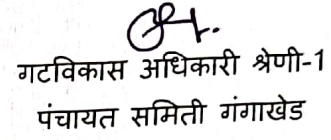 गटविकास अधिकारी श्रेणी-1
पंचायत समिती गंगाखेड